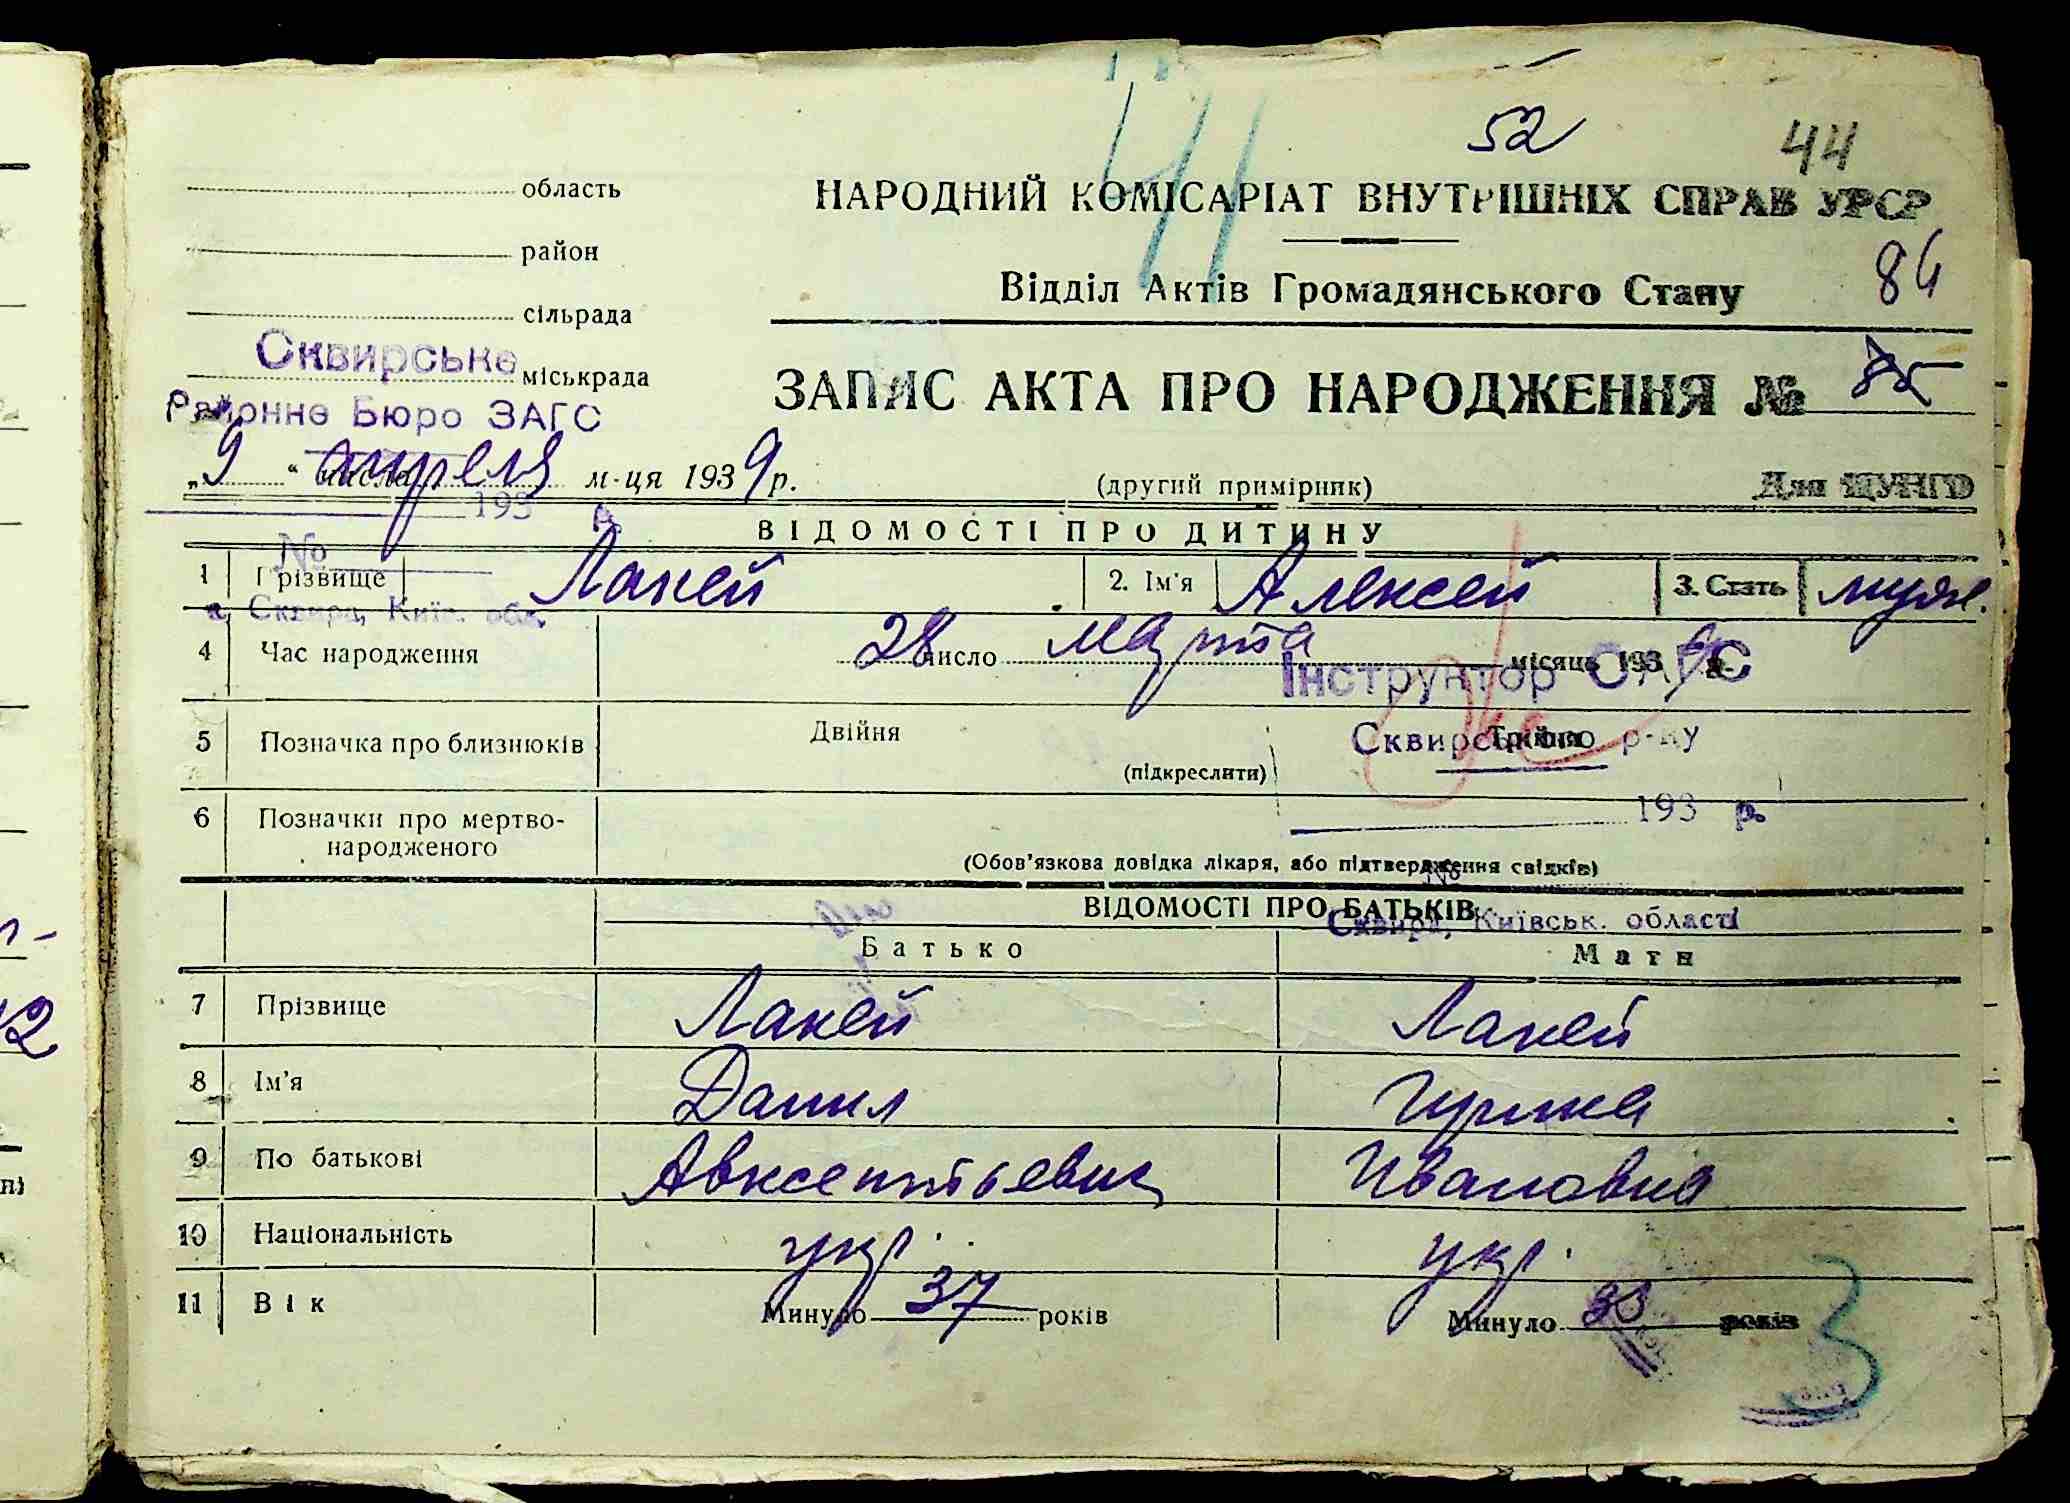 52 44
область
НАРОДНИЙ КОМІСАРІАТ ВНУТРІШНІХ СПРАВ УРСР
район
Відділ Актів Громадянського Стану 84
сільрада
Сквирське міськрада
ЗАПИС АКТА ПРО НАРОДЖЕННЯ № 85
Районне Бюро ЗАГС
„9“ числа апреля м-ця 1939 р. (другий примірник) Для ЦУНГО
193 р.
ВІДОМОСТІ ПРО ДИТИНУ
№
1 Прізвище Лакей 2. Ім'я Алексей 3. Стать муж.
м. Сквира, Київ. обл.
4 Час народження 28 число марта місяць 1939 р.
Інструктор ОАГС
5 Позначка про близнюків Двійня (підкреслити) Трійня
Сквирського р-ну
193 р.
6 Позначки про мертво-
народженого
(Обов'язкова довідка лікаря, або підтвердження свідків)
№
ВІДОМОСТІ ПРО БАТЬКІВ
Сквира, Київськ. області
Батько Мати
7 Прізвище Лакей Лакей
8 Ім'я Данил
9 По батькові Авксентьевич Ивановна
10 Національність укр. укр.
11 Вік Минуло 37 років Минуло років
3